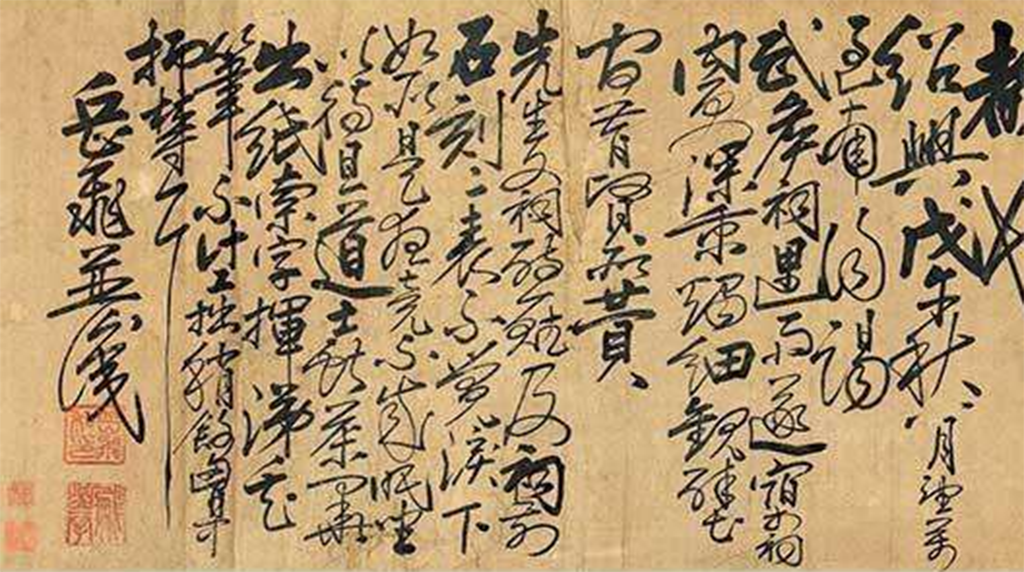 紹興戊午秋八月望前
過南陽謁
武矦祠遇雨遂宿於祠
內更深秉燭細觀壁
昔賢所贊
先生文祠詩賦及祠前
石刻二表不覺淚下
如雨是夜竟不成眠坐
以待旦道士獻茶畢
出紙索字揮涕走
筆不計工拙稍舒胸中
抑鬱耳
岳飛並識